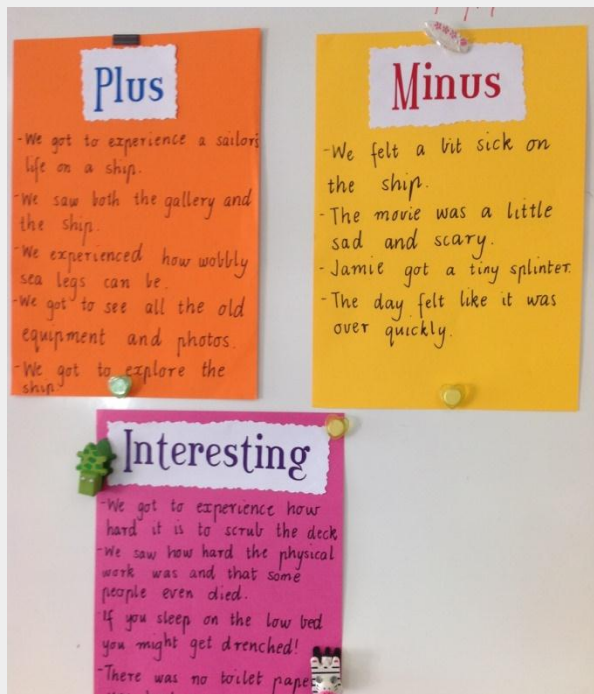 Plus
-We got to experience a sailor's
life on a ship.
-We saw both the gallery and
the ship.
-We experienced how wobbly
sea legs can be.
-We got to see all the old
equipment and photos.
-We got to explore the
ship.
Minus
-We felt a bit sick on
the ship.
-The movie was a little
sad and scary.
-Jamie got a tiny splinter.
-The day felt like it was
over quickly.
Interesting
-We got to experience how
hard it is to scrub the deck
-We saw how hard the physical
work was and that some
people even died.
-If you sleep on the low bed
you might get drenched!
-There was no toilet paper